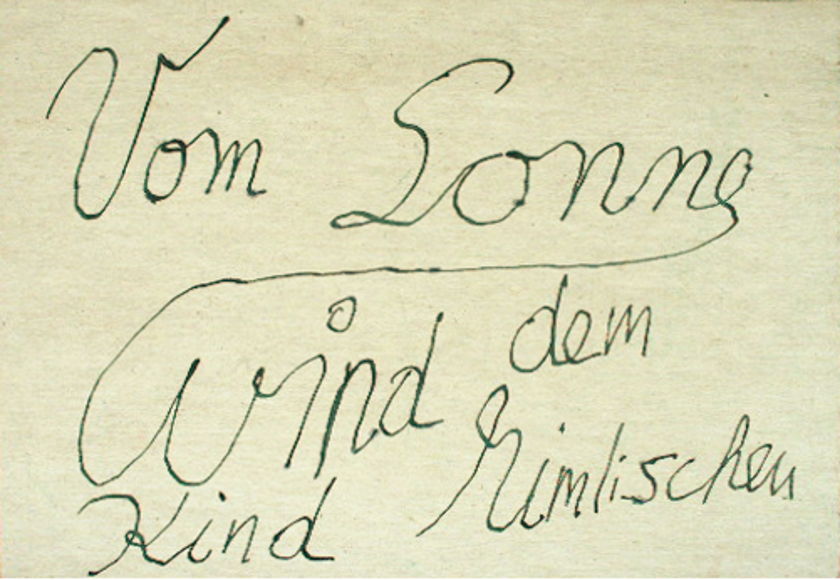 Vom Sonne
Wind dem
Himlischen
Kind